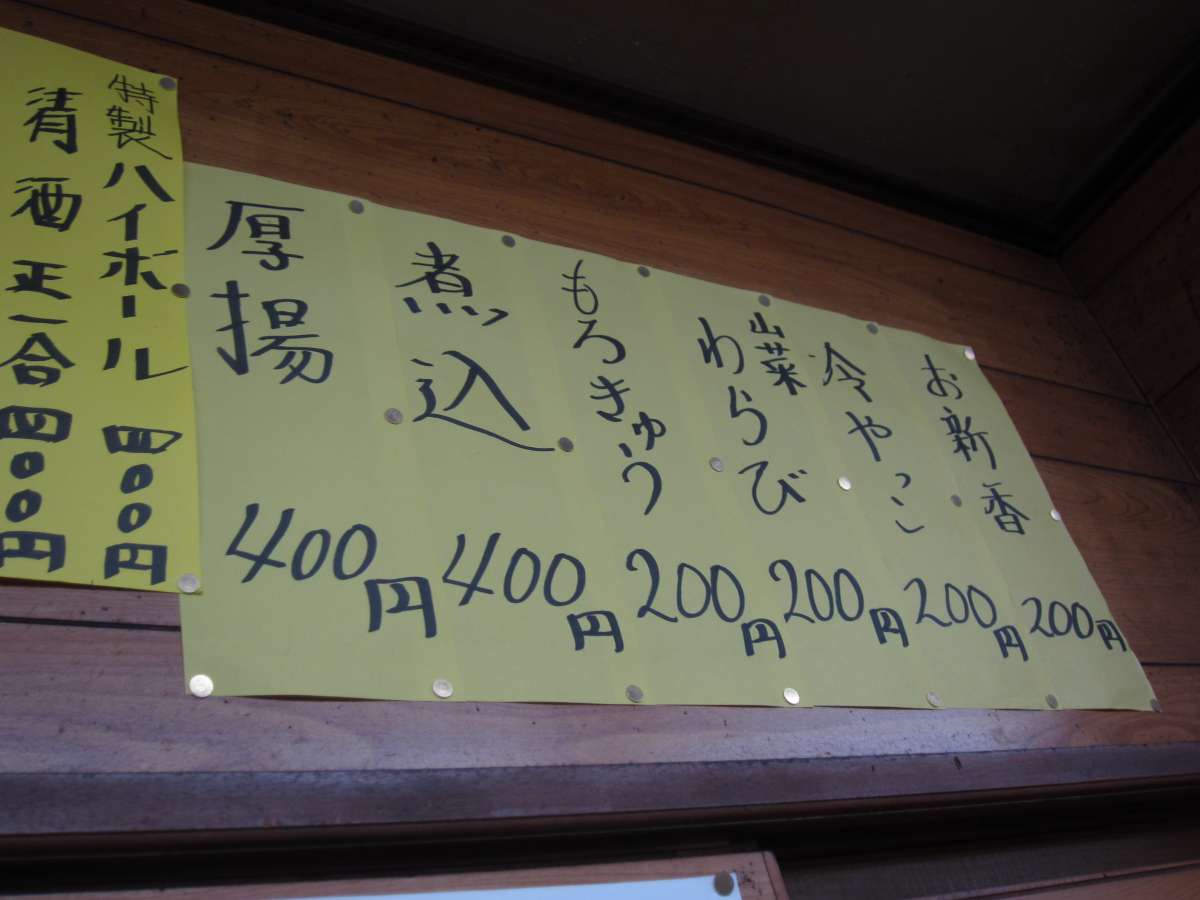 お新香 200円
冷やっこ 200円
山菜わらび 200円
もろきゅう 200円
煮込 400円
厚揚 400円
特製ハイボール 四〇〇円
清酒 正一合 四〇〇円